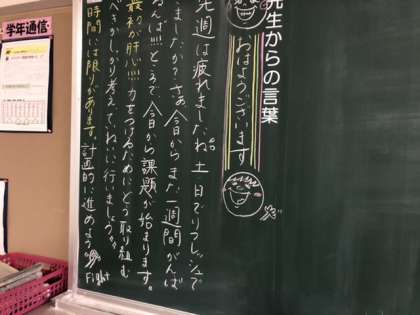 学年通信
先生からの言葉
おはようございます
先週は疲れましたね。土日でリフレッシュで
きましたか？さぁ、今日からまた一週間がんば
るんば!!!ところで、今日から課題が始まります。
最初が肝心!!!力をつけるためにどう取り組む
べきかしっかり考えてていねいに行いましょう
時間には限りがあります。計画的に進めよう
Fight